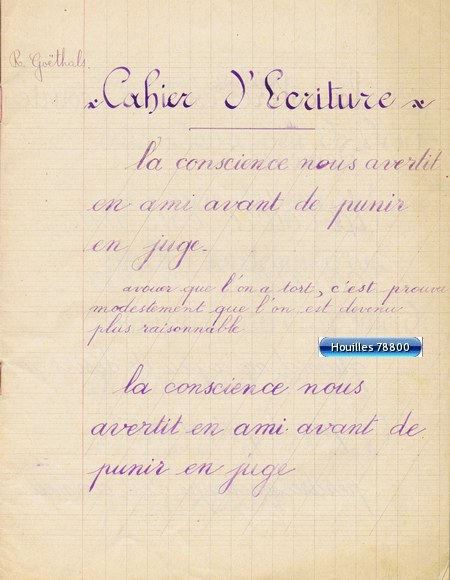 R. Goëthals.
Cahier d'Ecriture
la conscience nous avertit
en ami avant de punir
en juge.
avouer que l'on a tort, c'est prouver
modestement que l'on est devenu
plus raisonnable
Houilles 78800
la conscience nous
avertit en ami avant de
punir en juge